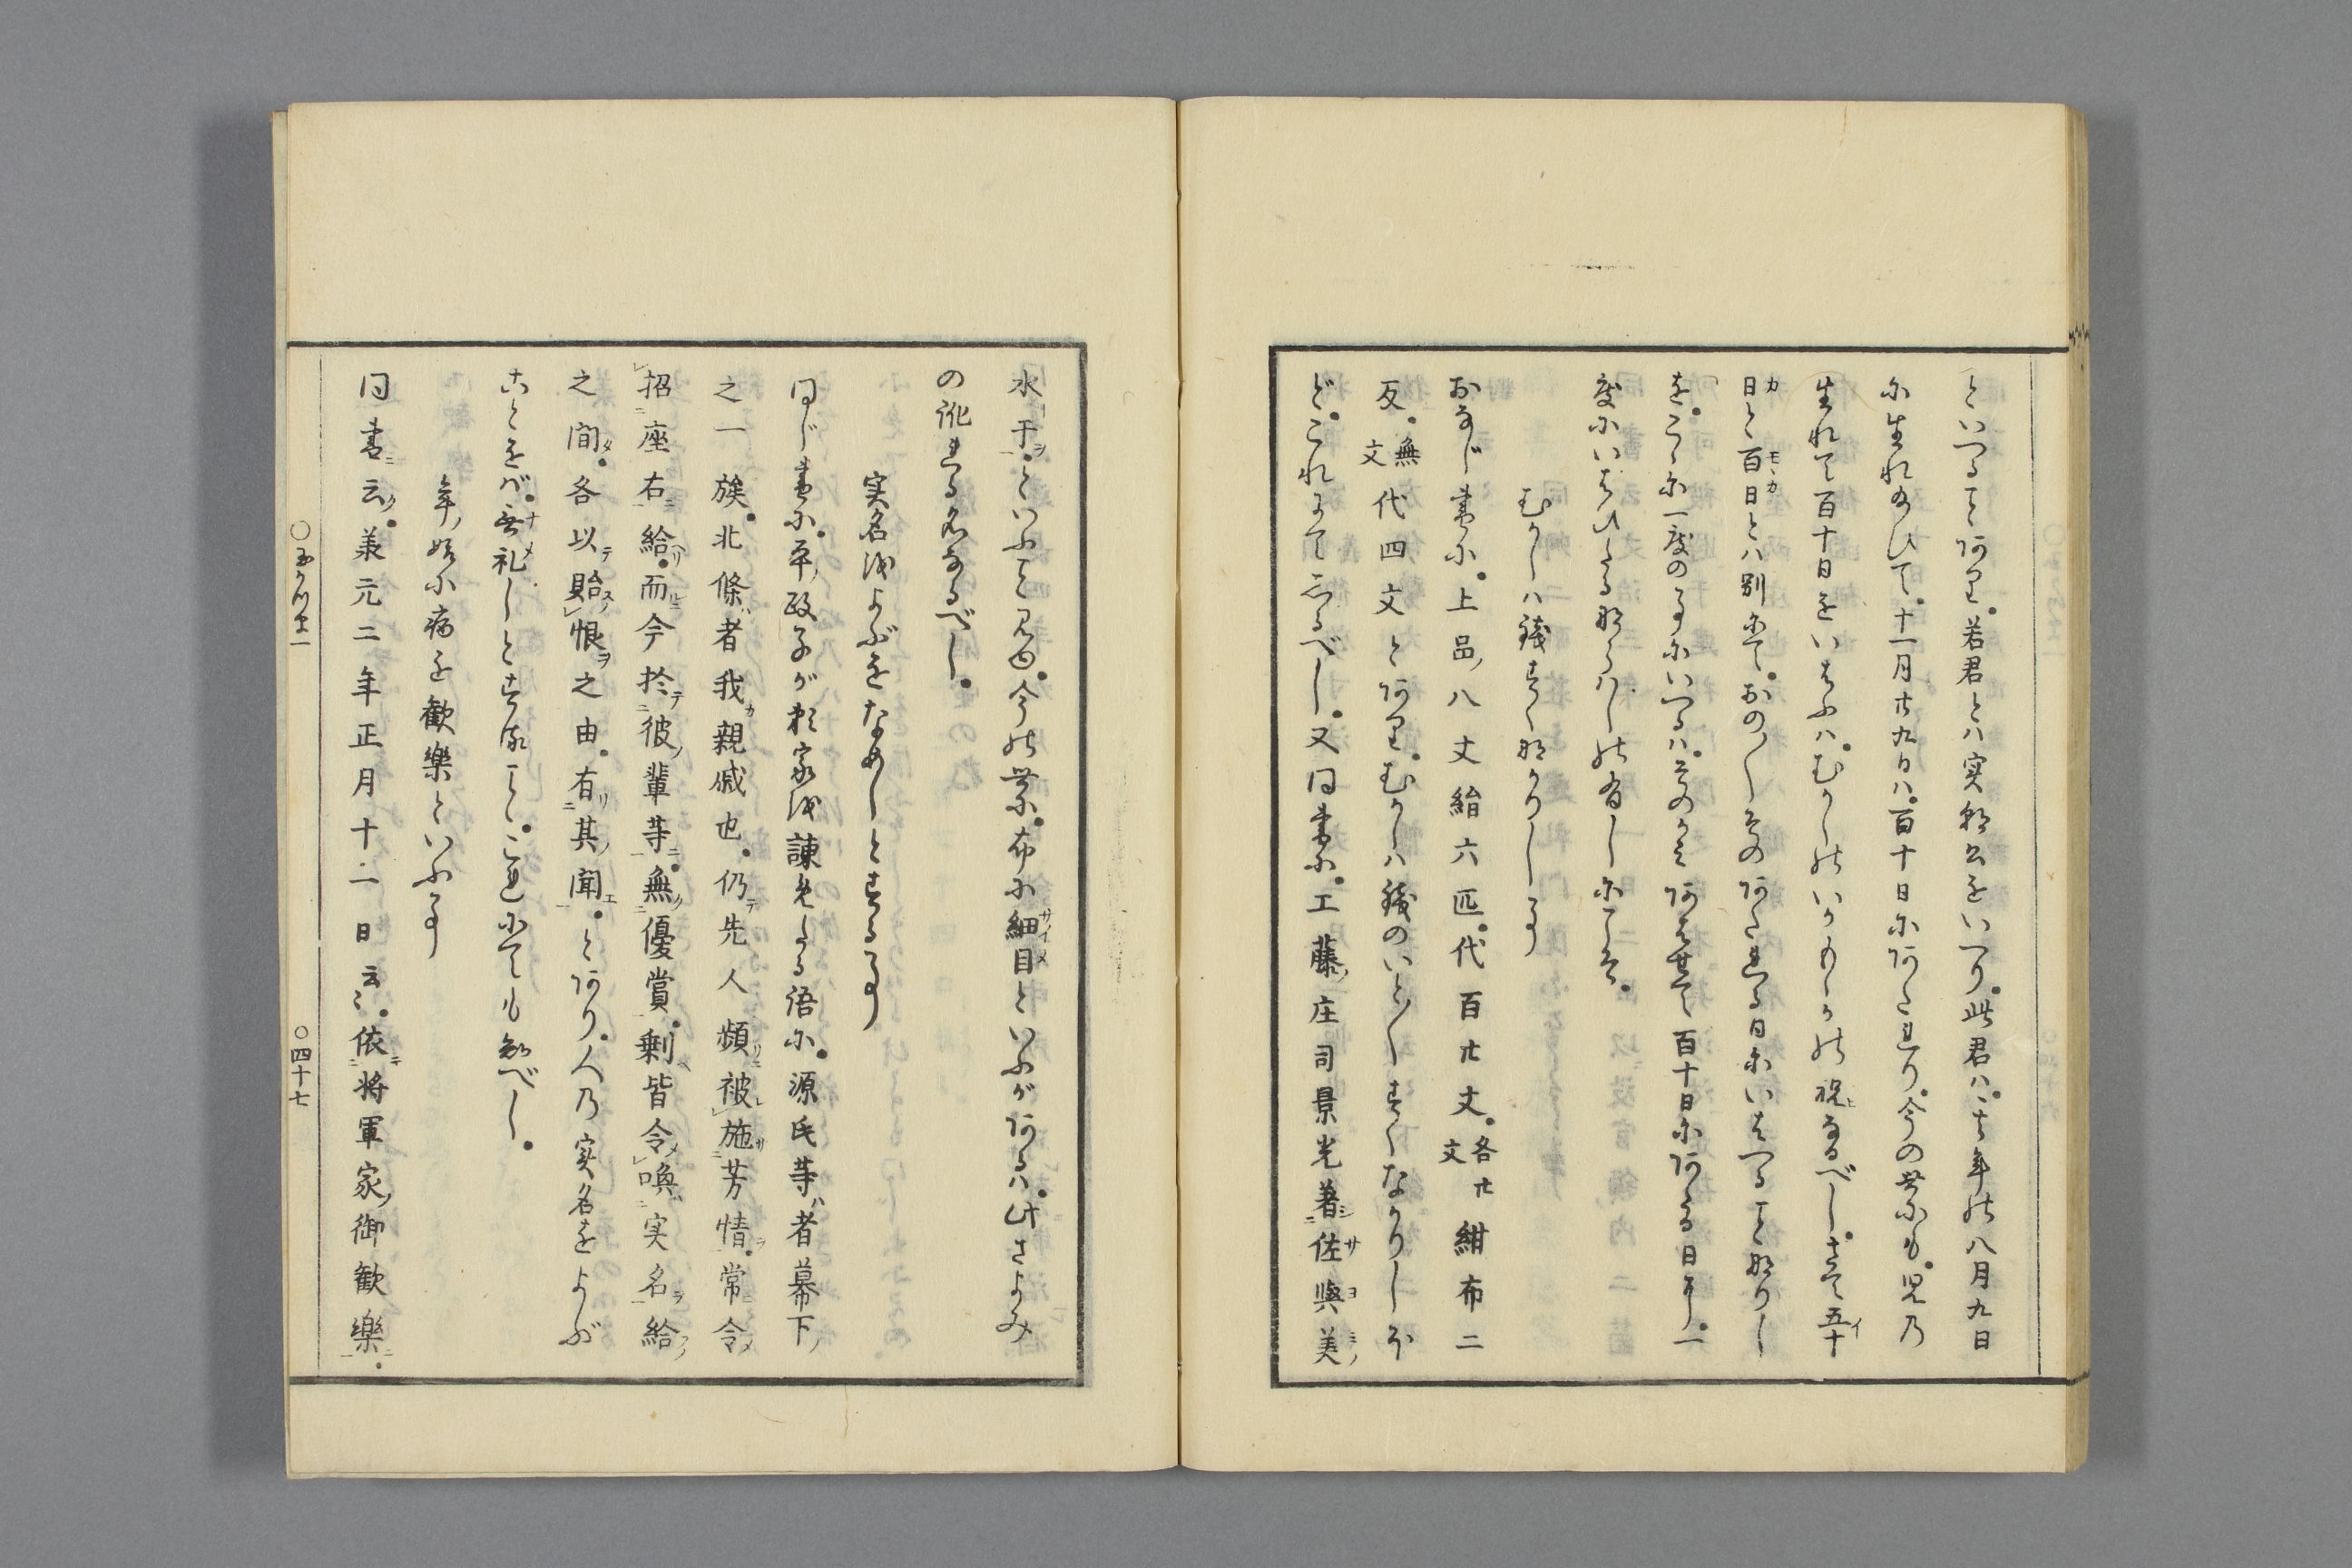 といへること有り。若君とハ実朝公をいへり。此君ハ。去年の八月九日
に生れ給ひて。十一月廿九日ハ。百十日にあたれり。今の世にも。児の
生れて百十日をいはふハ。むかしのいかもゝかの祝なるべし。さて五十
日と百日とハ別にて。おの〱その有たれる日にいはへること那りし
を。こゝに一度の事にいへるハ。そのかみあはせて百十日にあたる日に一
度にいはひたる那らハしの有しにこそ。
むかしハ銭すく那かりし事
おなじ書に。上品ノ八丈絹六匹。代百廿丈。各廿文紺布二
反。無文代四丈と有り。むかしハ銭のいと〱すくなかりしほ
ど。これにて志るべし。又同書に。工藤ノ庄司景光著佐與美
水干ヲ。といふこと見ゆ。今の世に。布に細目といふが有るハ。此さよみ
の訛れる名なるべし。
実名をよぶをなめしとする事
同じ書に。平ノ政子が頼家を諌めたる語に。源氏等ハ者幕下ノ
之一族。北條ハ者我カ親戚也。仍テ先人頻リニ被施芳情ヲ。常ニ令メ
招座右ニ給ヘリ。而今於テ彼ノ輩等ニ無優賞。剰ヘ皆令喚実名ヲ給フノ
之間タ。各以テ貽ス恨ヲ之由。有リ其ノ聞エ。と有り。人の実名をよぶ
ことをバ。無礼しとする事。これにても知べし。
年ノ始に病を歓樂といふ事
同書ニ云ク。兼元二年正月十二日云々。依テ将軍家ノ御歓樂ニ。
〇玉かつま十一　〇四十七